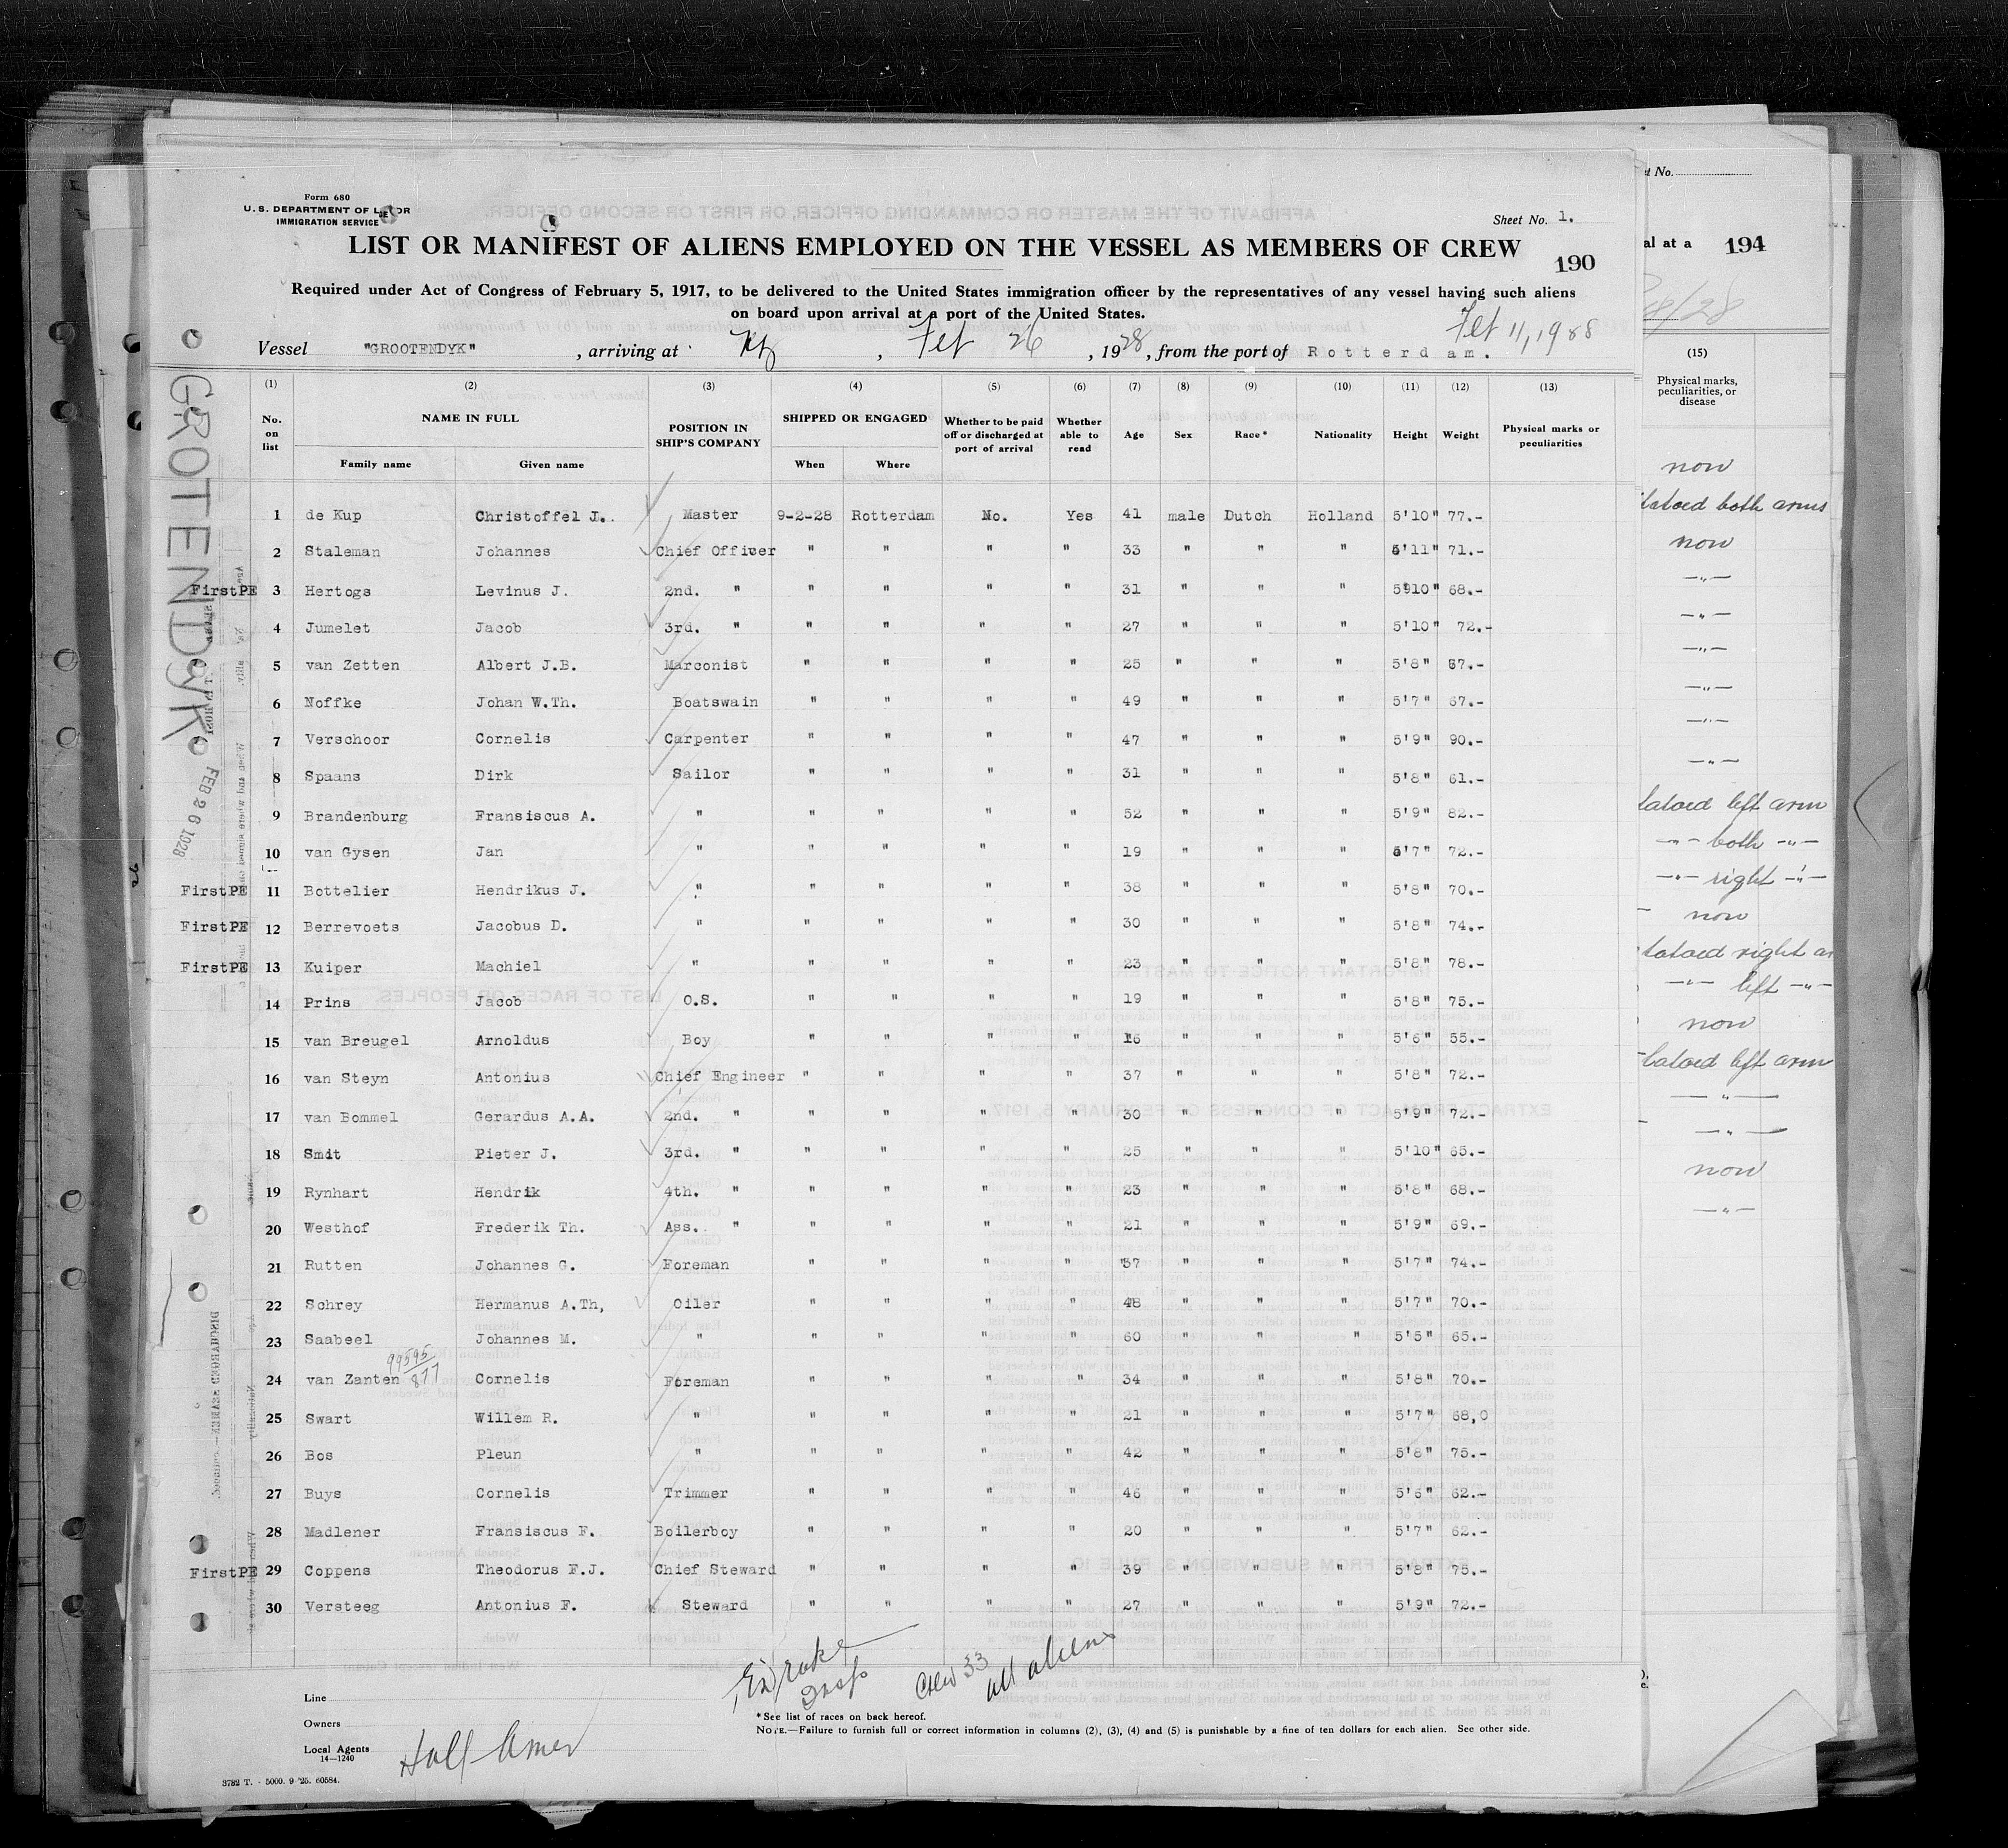 Form 680
U. S. DEPARTMENT OF LABOR
IMMIGRATION SERVICE
Sheet No. 1.
LIST OR MANIFEST OF ALIENS EMPLOYED ON THE VESSEL AS MEMBERS OF CREW
190
Required under Act of Congress of February 5, 1917, to be delivered to the United States immigration officer by the representatives of any vessel having such aliens
on board upon arrival at a port of the United States.
Feb 11, 1988
Vessel "GROOTENDYK" , arriving at , Feb 26 , 1928 , from the port of Rotterdam.
(1) (2) (3) (4) (5) (6) (7) (8) (9) (10) (11) (12) (13)
No. on list NAME IN FULL Family name Given name POSITION IN SHIP'S COMPANY SHIPPED OR ENGAGED When Where Whether to be paid off or discharged at port of arrival Whether able to read Age Sex Race* Nationality Height Weight Physical marks or peculiarities
1 de Kup Christoffel J. Master 9-2-28 Rotterdam No. Yes 41 male Dutch Holland 5'10" 77.-
2 Staleman Johannes Chief Officer " " " " 33 " " " 5'11" 71.-
FirstPE 3 Hertogs Levinus J. 2nd. " " " " " 31 " " " 5'10" 68.-
4 Jumelet Jacob 3rd. " " " " " 27 " " " 5'10" 72.-
5 van Zetten Albert J.B. Marconist " " " " 25 " " " 5'8" 67.-
6 Noffke Johan W.Th. Boatswain " " " " 49 " " " 5'7" 67.-
7 Verschoor Cornelis Carpenter " " " " 47 " " " 5'9" 90.-
8 Spaans Dirk Sailor " " " " 31 " " " 5'8" 61.-
9 Brandenburg Fransiscus A. " " " " " 52 " " " 5'9" 82.-
10 van Gysen Jan " " " " " 19 " " " 5'7" 72.-
FirstPE 11 Bottelier Hendrikus J. " " " " " 38 " " " 5'8" 70.-
FirstPE 12 Berrevoets Jacobus D. " " " " " 30 " " " 5'8" 74.-
FirstPE 13 Kuiper Machiel " " " " " 23 " " " 5'8" 78.-
14 Prins Jacob O.S. " " " " 19 " " " 5'8" 75.-
15 van Breugel Arnoldus Boy " " " " 16 " " " 5'6" 55.-
16 van Steyn Antonius Chief Engineer " " " " 37 " " " 5'8" 72.-
17 van Bommel Gerardus A.A. 2nd. " " " " " 30 " " " 5'9" 72.-
18 Smit Pieter J. 3rd. " " " " " 25 " " " 5'10" 65.-
19 Rynhart Hendrik 4th. " " " " " 23 " " " 5'8" 68.-
20 Westhof Frederik Th. Ass. " " " " " 21 " " " 5'9" 69.-
21 Rutten Johannes G. Foreman " " " " 37 " " " 5'7" 74.-
22 Schrey Hermanus A.Th, Oiler " " " " 48 " " " 5'7" 70.-
23 Saabeel Johannes M. " " " " " 60 " " " 5'5" 65.-
99595/877
24 van Zanten Cornelis Foreman " " " " 34 " " " 5'8" 70.-
25 Swart Willem R. " " " " " 21 " " " 5'7" 68,0
26 Bos Pleun " " " " " 42 " " " 5'8" 75.-
27 Buys Cornelis Trimmer " " " " 46 " " " 5'6" 62.-
28 Madlener Fransiscus F. Boilerboy " " " " 20 " " " 5'7" 62.-
FirstPE 29 Coppens Theodorus F.J. Chief Steward " " " " 39 " " " 5'8" 75.-
30 Versteeg Antonius F. Steward " " " " 27 " " " 5'9" 72.-
Insp
Crew 33
all aliens
Line
Owners
Local Agents Holl Amer
14—1240
*See list of races on back hereof.
NOTE.—Failure to furnish full or correct information in columns (2), (3), (4) and (5) is punishable by a fine of ten dollars for each alien. See other side.
3782 T. - 5000. 9-'25. 60584.
GROTENDYK
FEB 26 1928
t No.
al at a 194
8/28
(15)
Physical marks, peculiarities, or disease
non
tatoed both arms
non
—"—
—"—
—"—
—"—
—"—
—"—
tatoed left arm
—"— both —"—
—"— right —"—
non
tatoed right ar
—"— left —"—
non
tatoed left arm
—"—
—"—
non
—"—